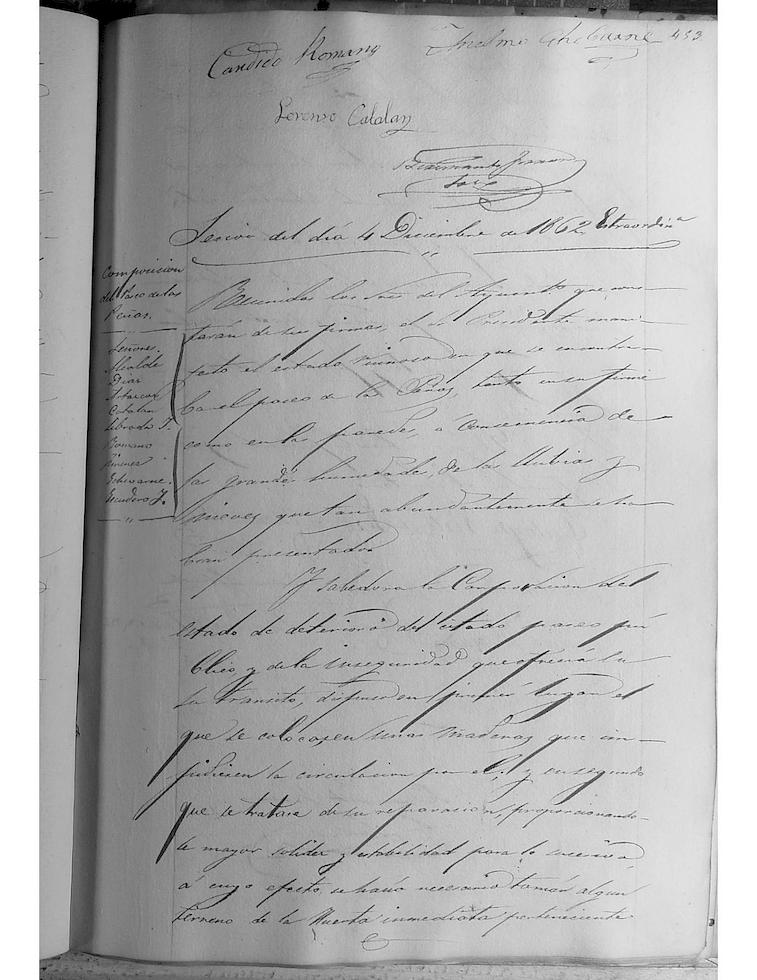 Candido Romano Anselmo Echevarne 453
Lorenzo Catalan
Sesion del dia 4 Diciembre de 1862 Estraordinª
Composicion
del Paseo de las
Peñas.
Señores.
Alcalde
Diaz
Catalan
Librada F.
Romano
Jimenez
Echevarne.
Escudero J.
Reunidos los Sres. del Ayuntº que cons-
tarán de sus firmas, el Sr. Presidente mani-
festó el estado ruinoso en que se encontra-
ba el paseo de las Peñas, tanto en su firme
como en las paredes, á consecuencia de
las grandes humedades, de las lluvias y
nieves que tan abundantemente se ha-
bian presentado.
Y sabedora la Corporacion del
estado de deterioro del citado paseo pú-
blico, y de la inseguridad que ofrecia su
su transito, dispuso en primer lugar el
que se colocasen unas maderas que im-
pidiesen la circulacion por el; y en segundo
que se tratase de su reparacion, proporcionando-
le mayor solidez y estabilidad para lo sucesivo,
á cuyo efecto se hacia necesario tomar algun
terreno de la Huerta inmediata perteneciente